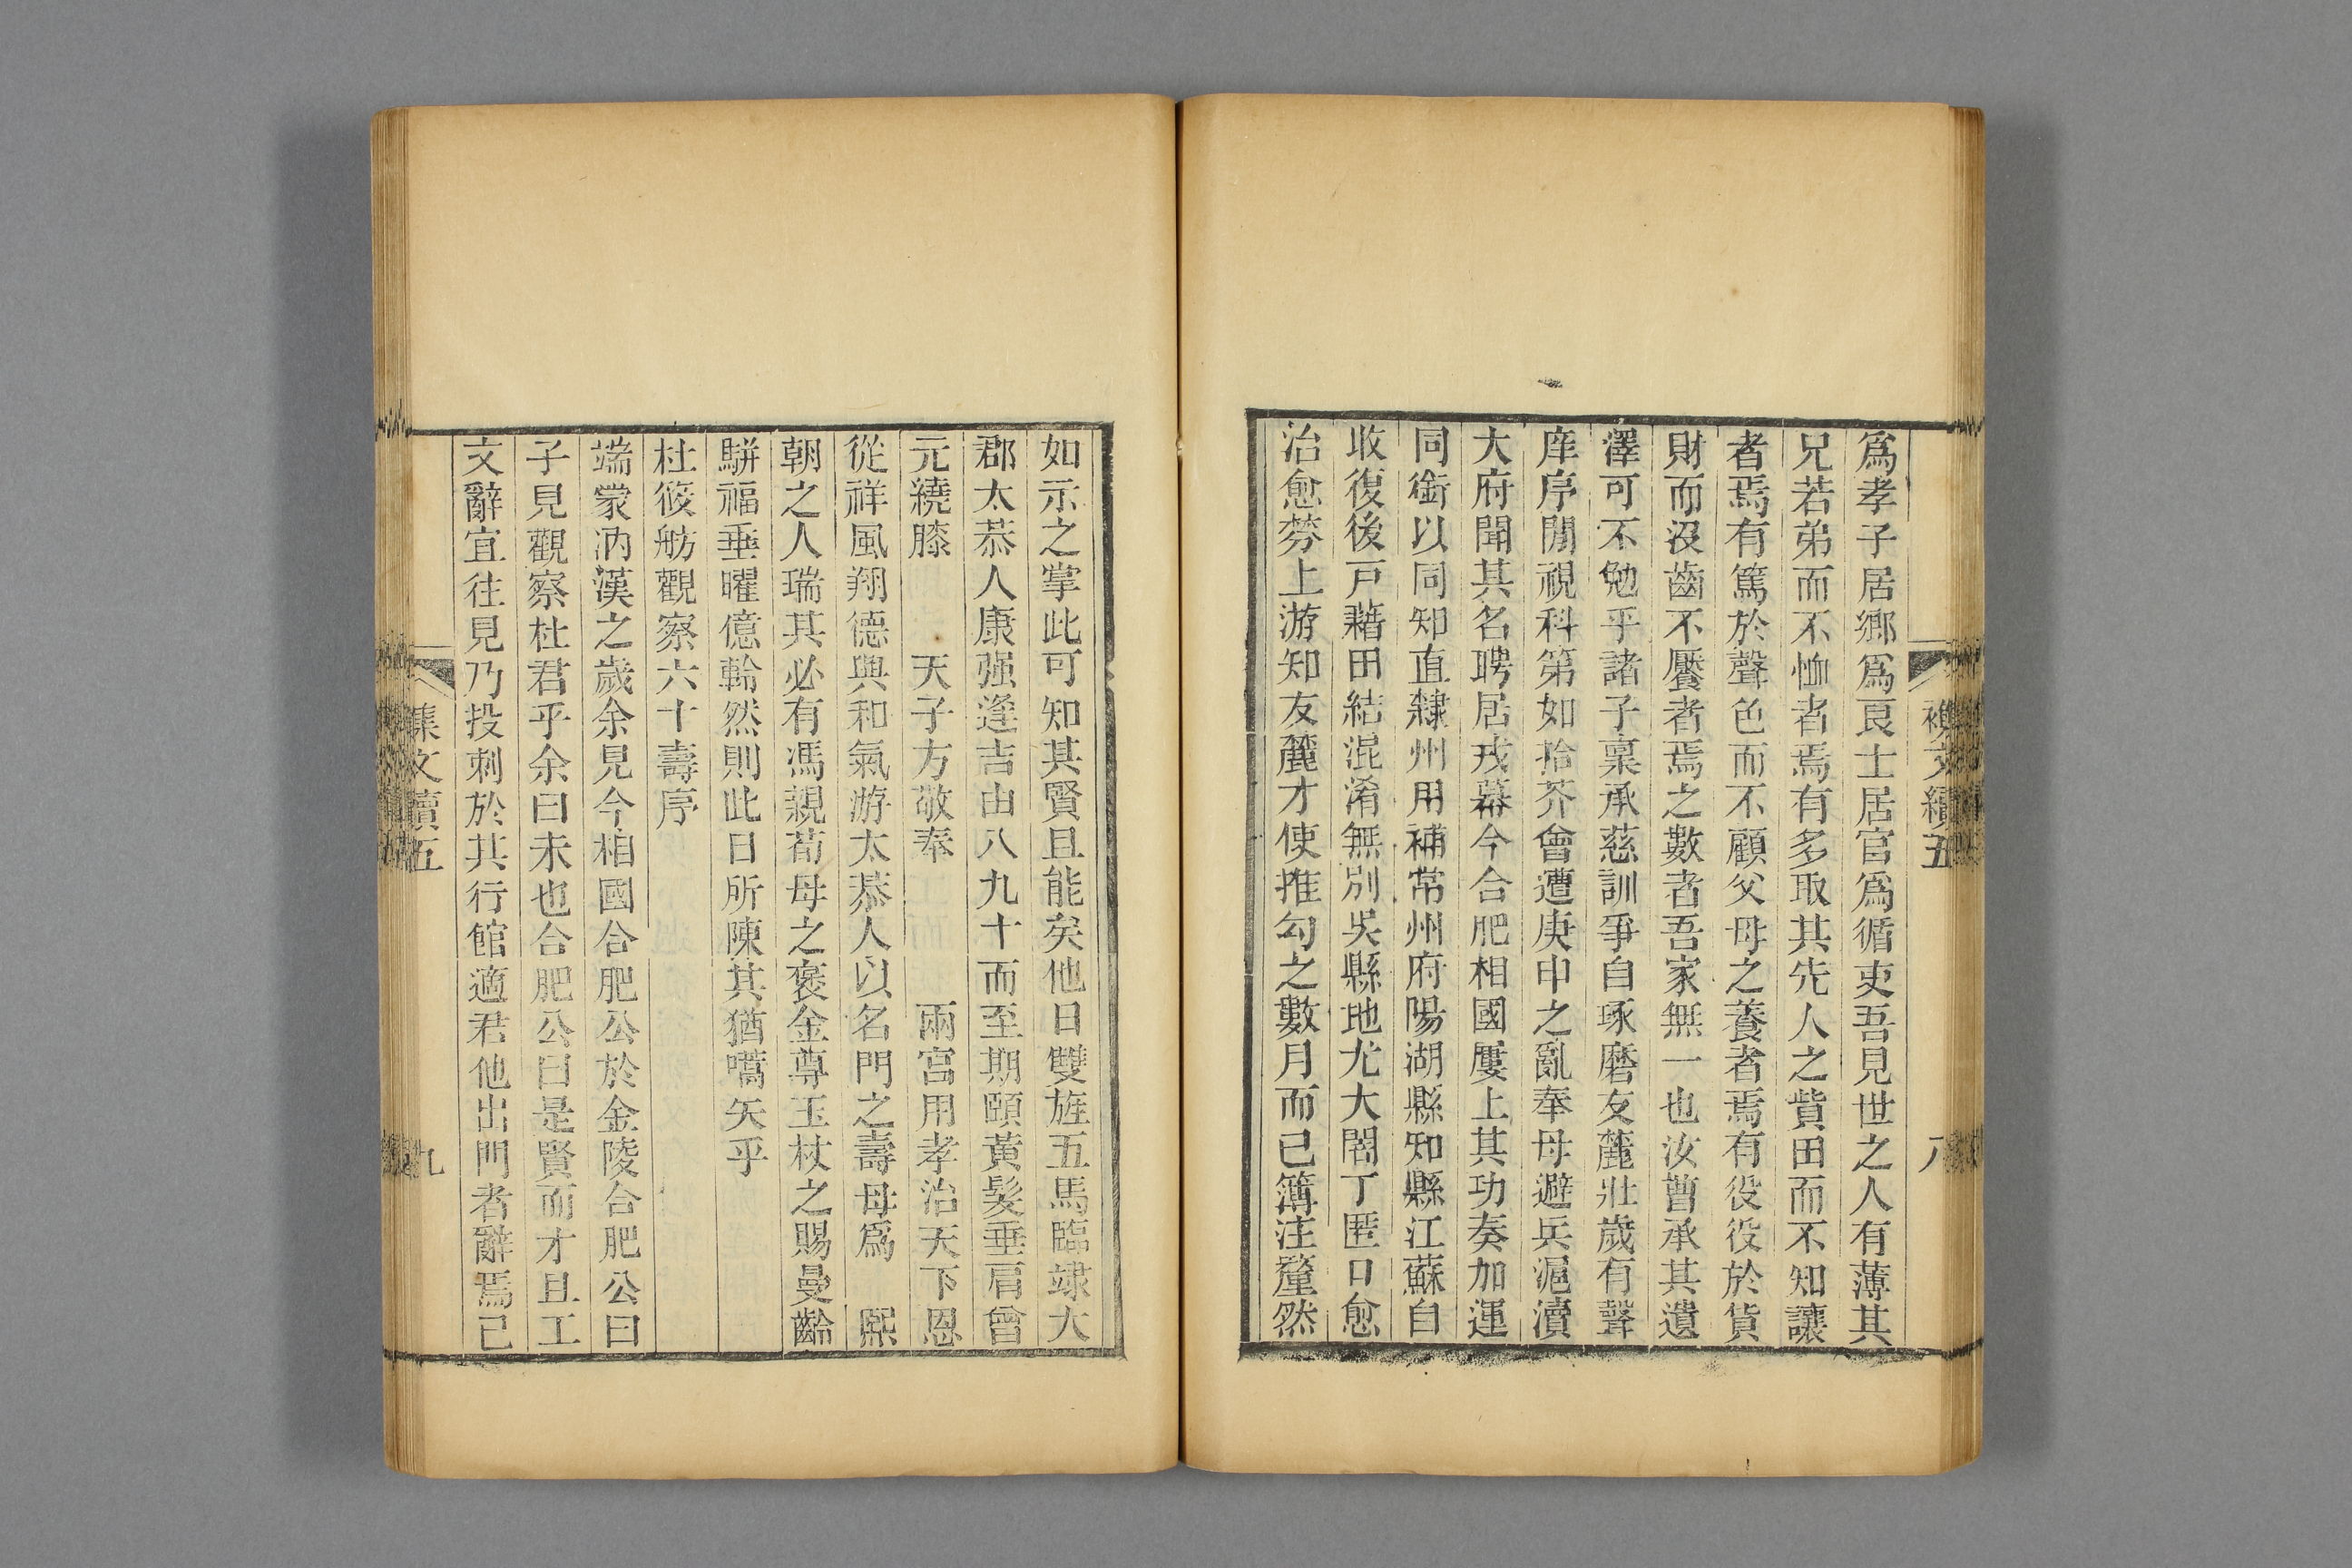 爲孝子居鄉爲良士居官爲循吏吾見世之人有薄其
兄若弟而不恤者焉有多取其先人之貲田而不知讓
者焉有篤於聲色而不顧父母之養者焉有役役於貨
財而沒齒不饜者焉之數者吾家無一也汝曹承其遺
澤可不勉乎諸子稟承慈訓爭自琢磨友麓壯歲有聲
庠序閒視科第如拾芥會遭庚申之亂奉母避兵滬瀆
大府聞其名聘居戎幕今合肥相國屢上其功奏加運
同銜以同知直隸州用補常州府陽湖縣知縣江蘇自
收復後戸藉田結混淆無別吳縣地尤大閤丁匿口愈
治愈棼上游知友麓才使推勾之數月而已簿注釐然
文續五
八
如示之掌此可知其賢且能矣他日雙旌五馬臨涖大
郡太恭人康强逢吉由八九十而至期頤黃髮垂肩曾
元繞膝 天子方敬奉 兩宮用孝治天下恩
從祥風翔德與和氣游太恭人以名門之壽母爲 熙
朝之人瑞其必有馮親荀母之褒金尊玉杖之賜曼齡
駢福垂曜億齡然則此日所陳其猶嚆矢乎
杜筱舫觀察六十壽序
端蒙汭漢之歲余見今相國合肥公於金陵合肥公曰
子見觀察杜君乎余曰未也合肥公曰是賢而才且工
文辭宜往見乃投刺於其行館適君他出門者辭焉已
集文續五
九